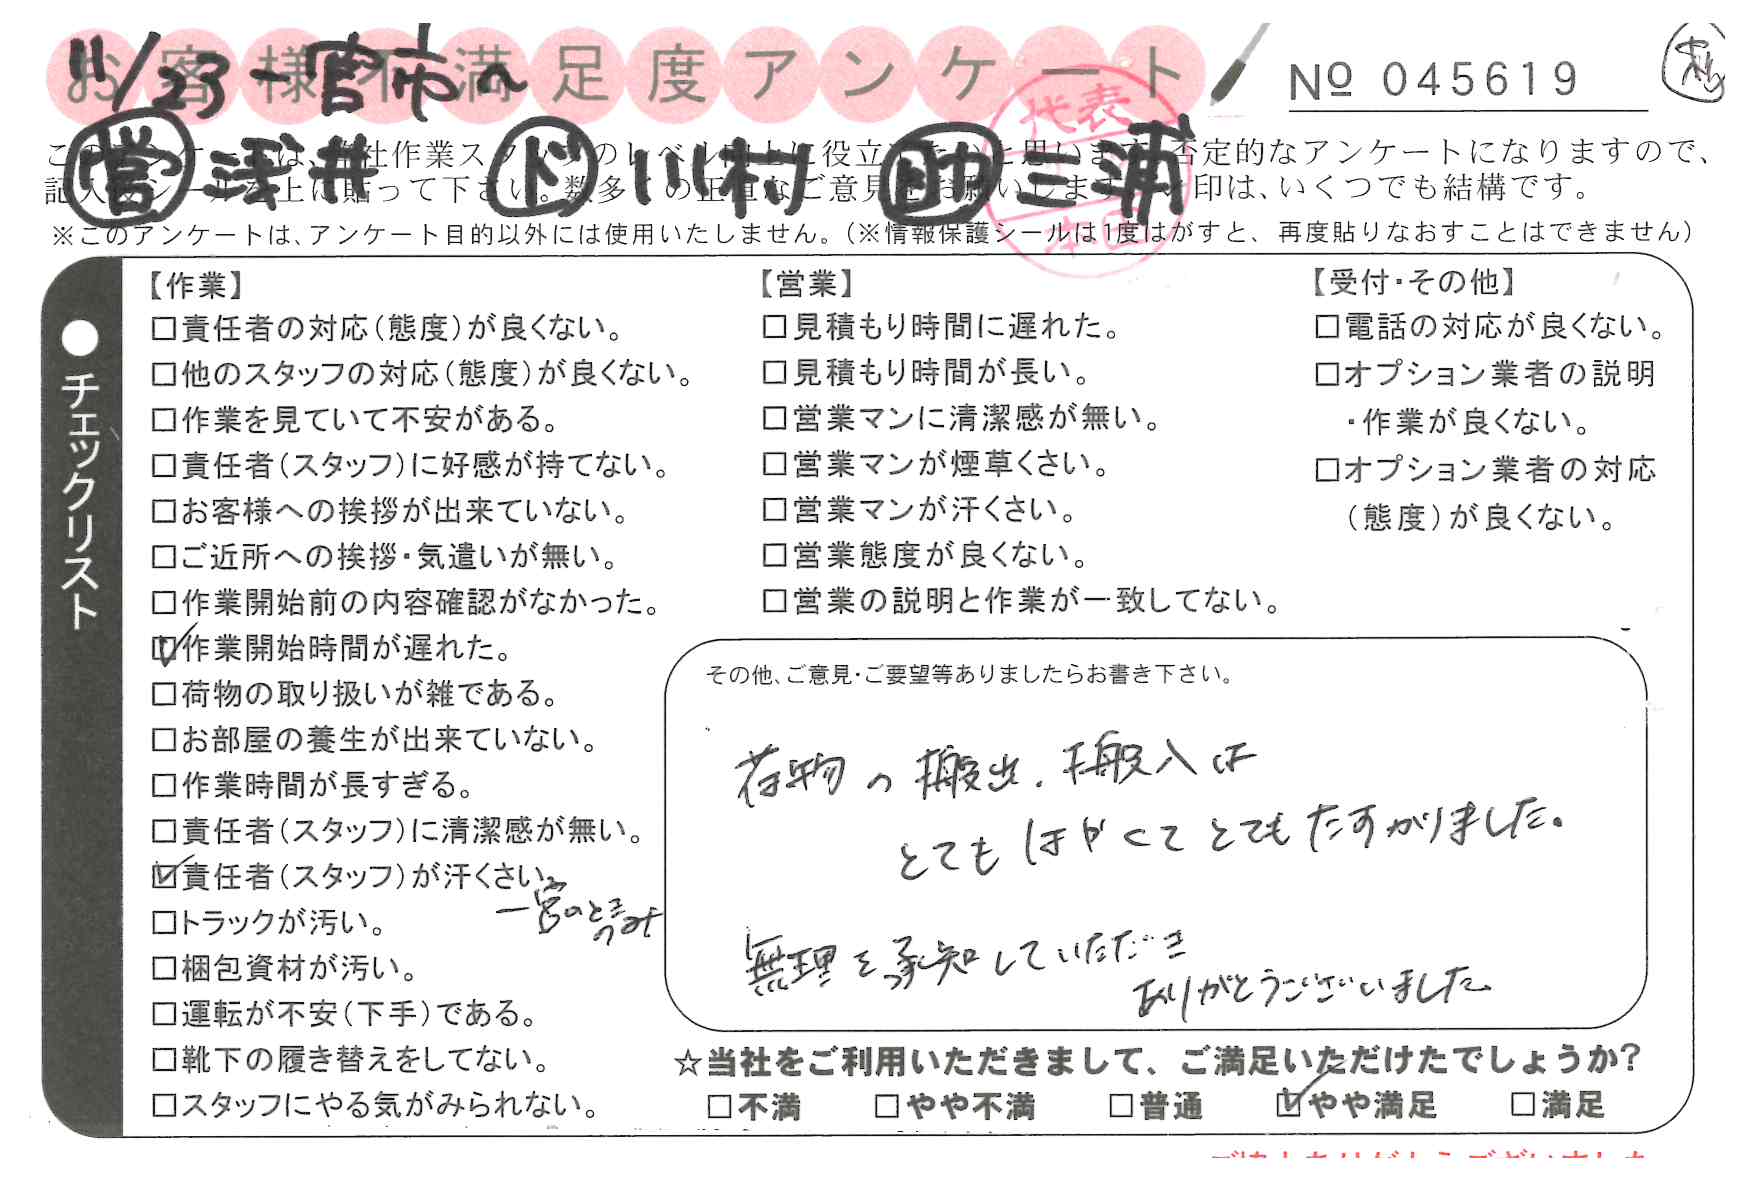 お客様不満足度アンケート
11/23 一宮市へ
Nº 045619
営 浅井 ド 川村 助 三浦
代表
本田
※このアンケートは、アンケート目的以外には使用いたしません。(※情報保護シールは1度はがすと、再度貼りなおすことはできません)
●チェックリスト
【作業】
□責任者の対応(態度)が良くない。
□他のスタッフの対応(態度)が良くない。
□作業を見ていて不安がある。
□責任者(スタッフ)に好感が持てない。
□お客様への挨拶が出来ていない。
□ご近所への挨拶・気遣いが無い。
□作業開始前の内容確認がなかった。
☑作業開始時間が遅れた。
□荷物の取り扱いが雑である。
□お部屋の養生が出来ていない。
□作業時間が長すぎる。
□責任者(スタッフ)に清潔感が無い。
☑責任者(スタッフ)が汗くさい。
一宮のとき
□トラックが汚い。
□梱包資材が汚い。
□運転が不安(下手)である。
□靴下の履き替えをしてない。
□スタッフにやる気がみられない。
【営業】
□見積もり時間に遅れた。
□見積もり時間が長い。
□営業マンに清潔感が無い。
□営業マンが煙草くさい。
□営業マンが汗くさい。
□営業態度が良くない。
□営業の説明と作業が一致してない。
【受付・その他】
□電話の対応が良くない。
□オプション業者の説明
・作業が良くない。
□オプション業者の対応
(態度)が良くない。
その他、ご意見・ご要望等ありましたらお書き下さい。
荷物の搬出、搬入は
とてもはやくてとてもたすかりました。
無理を承知していただき
ありがとうございました
☆当社をご利用いただきまして、ご満足いただけたでしょうか?
□不満 □やや不満 □普通 ☑やや満足 □満足